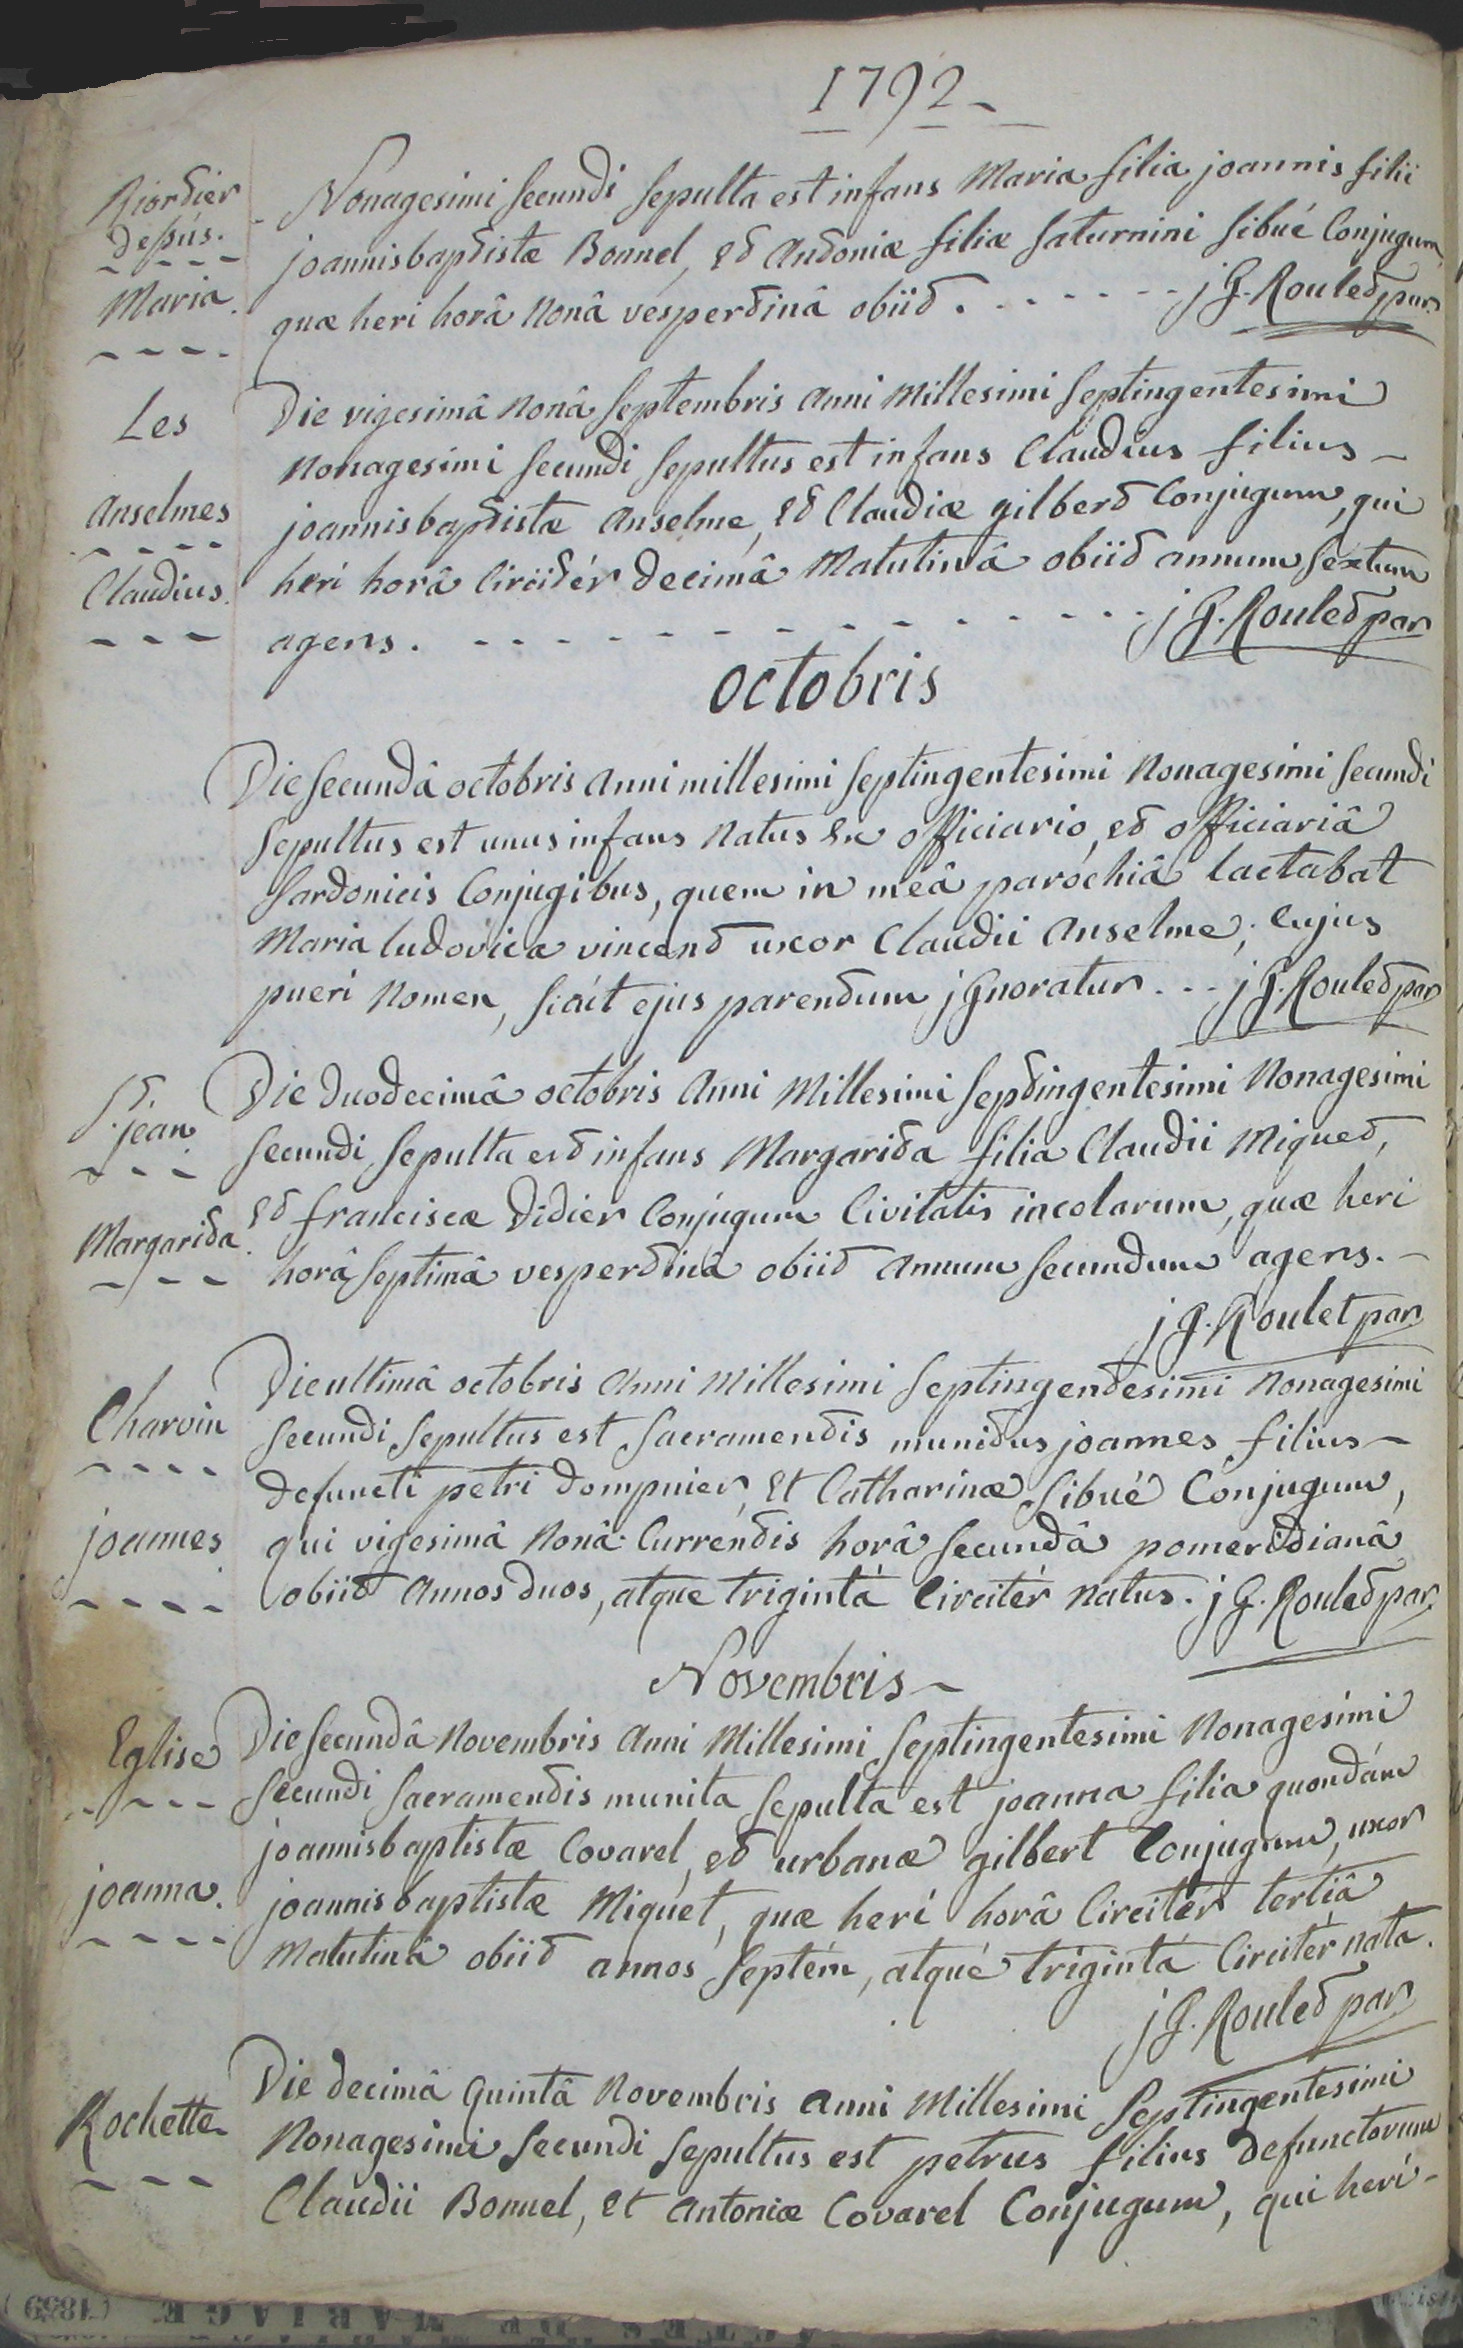 1792
Riortier
dessus.
Maria.
Nonagesimi secundi sepulta est infans Maria filia joannis filii
joannisbaptistæ Bonnel, et Antoniæ filiæ saturnini sibué Conjugum,
quæ heri horâ Nonâ vespertinâ obiit. j G. Roulet par.
Les
Anselmes
Claudius.
Die vigesimâ Nonâ septembris Anni Millesimi septingentesimi
Nonagesimi secundi sepultus est infans Claudius filius
joannisbaptistæ Anselme, et Claudiæ gilbert Conjugum, qui
heri horâ Circitér decimâ Matutinâ obiit annum sextum
agens. j G. Roulet par
Octobris
Die secundâ octobris Anni millesimi septingentesimi Nonagesimi secundi
sepultus est unus infans Natus Ex officiario, et officiariâ
sardonicis Conjugibus, quem in meâ parochiâ lactabat
Maria ludovica vincent uxor Claudii Anselme; Cujus
pueri Nomen, sicút ejus parentum jgnoratur. j G. Roulet par
St.
jean.
Margarita.
Die Duodecimâ octobris Anni Millesimi septingentesimi Nonagesimi
secundi sepulta est infans Margarita filia Claudii Miquet,
et franciscæ Didier Conjugum Civitatis incolarum, quæ heri
horâ septimâ vespertinâ obiit Annum secundum agens.
j G. Roulet par.
Charvin
joannes
Die ultimâ octobris Anni Millesimi septingentesimi Nonagesimi
secundi sepultus est sacramentis munitus joannes filius
defuncti petri dompnier, Et Catharinæ sibué Conjugum,
qui vigesimâ Nonâ Currentis horâ secundâ pomeridianâ
obiit Annos duos, atque trigintá Circitér Natus. j G. Roulet par.
Novembris
Eglise
joanna.
Die secundâ Novembris Anni Millesimi septingentesimi Nonagesimi
secundi sacramentis munita sepulta est joanna filia quondám
joannisbaptistæ Covarel, et urbanæ gilbert Conjugum, uxor
joannisbaptistæ Miquet, quæ heri horâ Circitér tertiâ
Matutinâ obiit annos septém, atqué trígintá Circitér nata.
j G. Roulet par
Rochette
Die decimâ Quintâ Novembris Anni Millesimi septingentesimi
Nonagesimi secundi sepultus est petrus filius defunctorum
Claudii Bonnel, Et Antoniæ Covarel Conjugum, qui heri